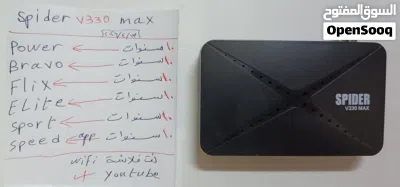 Spider V330 max
Power ← ١٠ سنوات
Bravo ← ١٠ سنوات
Flix ← ١٠ سنوات
ELite ← ١٠ سنوات
Sport ← ١٠ سنوات
Speed app ← ١٠ سنوات
wifi فلاشة
+ youtube
السوق المفتوح
OpenSooq
SPIDER
V330 MAX